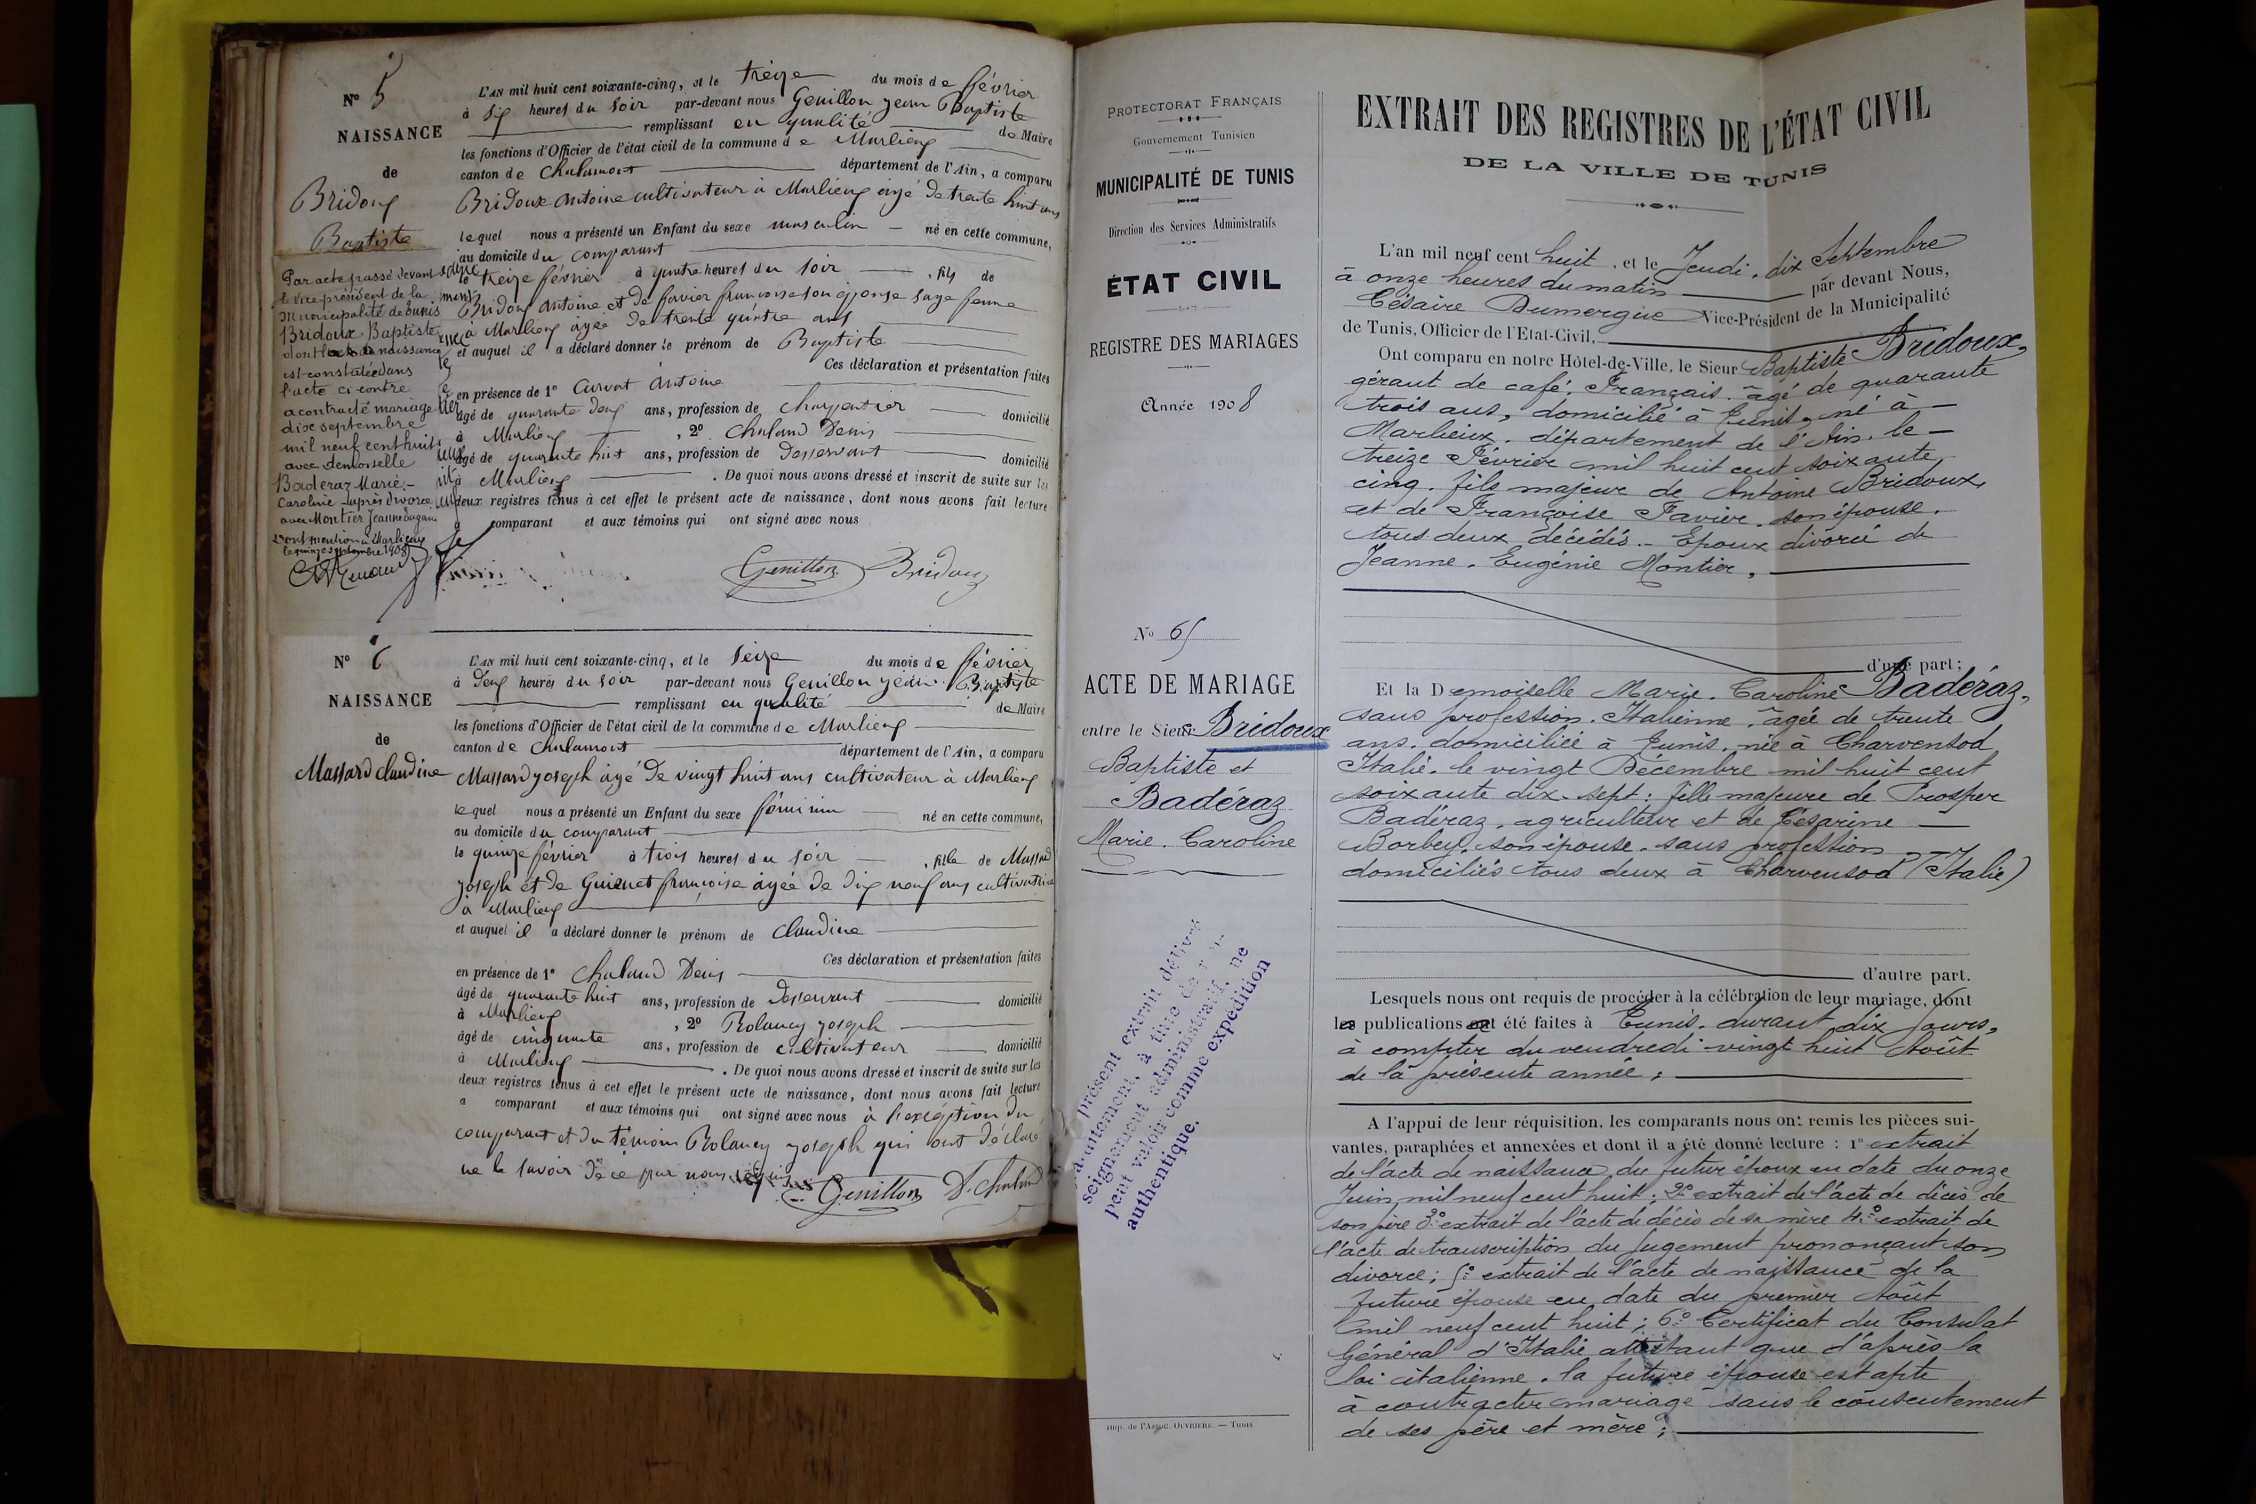 N° 5
NAISSANCE
de
Bridoux
Baptiste
Par acte passé devant
le vice président de la
municipalité de Tunis
Bridoux Baptiste
dont la naissance
est constatée dans
l'acte ci contre
a contracté mariage
dix septembre
mil neuf cent huit
avec demoiselle
Baderaz Marie-
Caroline après divorce
avec Montier Jeanne Eugénie
Dont mention à Marlieux
le quinze septembre 1908
L'AN mil huit cent soixante-cinq, et le treize du mois de février
à six heures du soir par-devant nous Genillon Jean Baptiste
remplissant en qualité de Maire
les fonctions d'Officier de l'état civil de la commune de Marlieux
canton de Chalamont département de l'Ain, a comparu
Bridoux Antoine cultivateur à Marlieux âgé de trente huit ans
lequel nous a présenté un Enfant du sexe masculin né en cette commune,
au domicile du comparant
le treize février à quatre heures du soir, fils de
Bridoux Antoine et de favier françoise son épouse sage femme
à Marlieux âgée de trente quatre ans
et auquel il a déclaré donner le prénom de Baptiste
Ces déclaration et présentation faites
en présence de 1° Curvat Antoine
âgé de quarante deux ans, profession de Charpentier domicilié
à Marlieux, 2° Chaland Denis
âgé de quarante huit ans, profession de Desservant domicilié
à Marlieux. De quoi nous avons dressé et inscrit de suite sur les
deux registres tenus à cet effet le présent acte de naissance, dont nous avons fait lecture
comparant et aux témoins qui ont signé avec nous
Genillon Bridoux
N° 6
NAISSANCE
de
Massard Claudine
L'AN mil huit cent soixante-cinq, et le seize du mois de février
à deux heures du soir par-devant nous Genillon Jean Baptiste
remplissant en qualité de Maire
les fonctions d'Officier de l'état civil de la commune de Marlieux
canton de Chalamont département de l'Ain, a comparu
Massard Joseph âgé de vingt huit ans cultivateur à Marlieux
lequel nous a présenté un Enfant du sexe féminin né en cette commune,
au domicile du comparant
le quinze février à trois heures du soir, fille de Massard
Joseph et de Guienet françoise âgée de dix neuf ans cultivatrice
à Marlieux
et auquel il a déclaré donner le prénom de Claudine
Ces déclaration et présentation faites
en présence de 1° Chaland Denis
âgé de quarante huit ans, profession de Desservant domicilié
à Marlieux, 2° Rolancy Joseph
âgé de cinquante ans, profession de cultivateur domicilié
à Marlieux. De quoi nous avons dressé et inscrit de suite sur les
deux registres tenus à cet effet le présent acte de naissance, dont nous avons fait lecture
a comparant et aux témoins qui ont signé avec nous à l'exception du
comparant et du témoin Rolancy Joseph qui ont déclaré
ne le savoir de ce par nous requis
Genillon D. Chaland
PROTECTORAT FRANÇAIS
Gouvernement Tunisien
MUNICIPALITÉ DE TUNIS
Direction des Services Administratifs
ÉTAT CIVIL
REGISTRE DES MARIAGES
Année 1908
N° 65
ACTE DE MARIAGE
entre le Sieur Bridoux
Baptiste et
Badéraz
Marie. Caroline
présent extrait délivré
gratuitement, à titre de
seignement administratif, ne
peut valoir comme expédition
authentique.
Imp. de l'Assoc. OUVRIÈRE. — Tunis
EXTRAIT DES REGISTRES DE L'ÉTAT CIVIL
DE LA VILLE DE TUNIS
L'an mil neuf cent huit, et le Jeudi, dix Septembre
à onze heures du matin par devant Nous,
Césaire Dumergue Vice-Président de la Municipalité
de Tunis, Officier de l'Etat-Civil,
Ont comparu en notre Hôtel-de-Ville, le Sieur Baptiste Bridoux,
gérant de café, Français, âgé de quarante
trois ans, domicilié à Tunis, né à
Marlieux. département de l'Ain, le
treize Février mil huit cent soixante
cinq. fils majeur de Antoine Bridoux,
et de Françoise Favier. son épouse.
tous deux décédés. Epoux divorcé de
Jeanne. Eugénie Montier,
d'une part;
Et la Demoiselle Marie. Caroline Badéraz,
sans profession. Italienne. âgée de trente
ans. domiciliée à Tunis. née à Charvensod
Italie. le vingt Décembre mil huit cent
soixante dix-sept: fille majeure de Prosper
Badéraz, agriculteur et de Césarine
Borbey, son épouse. sans profession
domiciliés tous deux à Charvensod (Italie)
d'autre part.
Lesquels nous ont requis de procéder à la célébration de leur mariage, dont
les publications ont été faites à Tunis. durant dix jours,
à compter du vendredi vingt huit Août
de la présente année;
A l'appui de leur réquisition, les comparants nous ont remis les pièces sui-
vantes, paraphées et annexées et dont il a été donné lecture : 1° extrait
de l'acte de naissance du futur époux en date du onze
Juin mil neuf cent huit; 2° extrait de l'acte de décès de
son père 3° extrait de l'acte de décès de sa mère 4° extrait de
l'acte de transcription du jugement prononçant son
divorce; 5° extrait de l'acte de naissance de la
future épouse en date du premier Août
mil neuf cent huit; 6° Certificat du Consulat
Général d'Italie attestant que d'après la
loi italienne. la future épouse est apte
à contracter mariage sans le consentement
de ses père et mère;